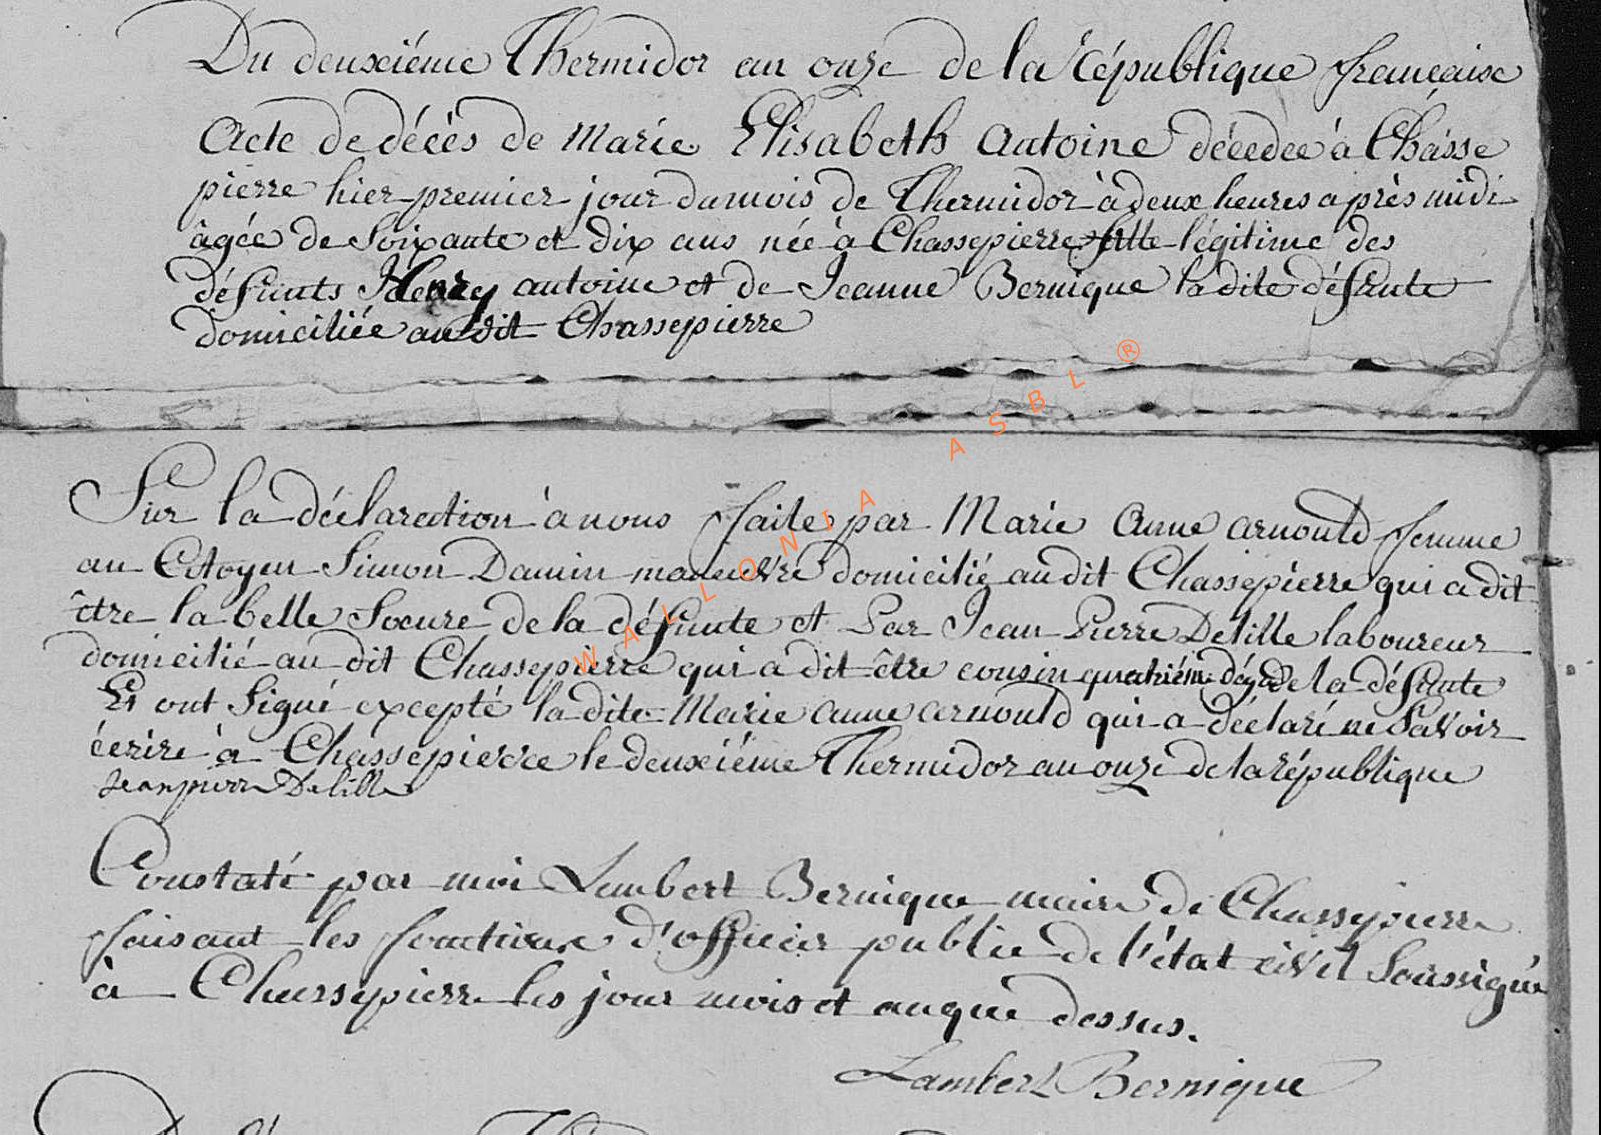 Du deuxiéme Thermidor an onze de la République française
Acte de décès de Marie Elisabeth Antoine décedée à Chasse
pierre hier premier jour du mois de Thermidor à deux heures après midi
âgée de Soixante et dix ans née à Chassepierre fille légitime des
défunts Henry antoine et de Jeanne Bernique la dite défunte
domiciliée au dit Chassepierre
Sur la déclaration à nous faite par Marie Anne arnould femme
au Citoyen Simon Damin manuevre domicilié au dit Chassepierre qui a dit
être la belle Soeure de la défunte et Par Jean Pierre Delille laboureur
domicilié au dit Chassepierre qui a dit être cousin quatriém dégré de la défunte
Et ont Signé excepté la dite Marie anne arnould qui a déclaré ne Savoir
écrire à Chassepierre le deuxiéme Thermidor an onze de la république
Jean pierre Delille
Constaté par moi Lambert Bernique maire de Chassepierre
faisant les fonctions d'officier public de l'état civil Soussigné
à Chassepierre les jour mois et an que dessus.
Lambert Bernique
WALLONIA ASBL ®